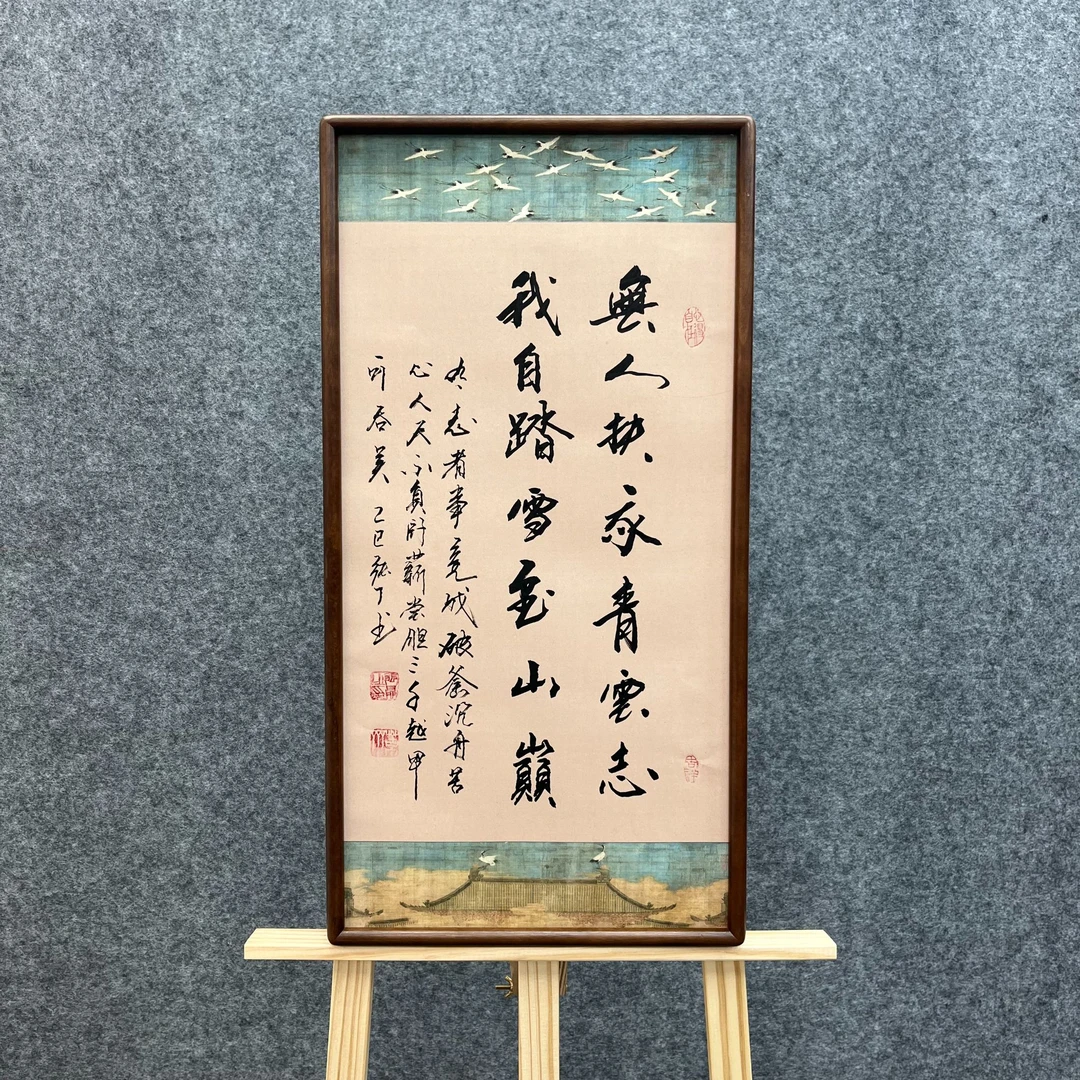 無人扶我青雲志
我自踏雪至山巔
有志者事竟成破釜沉舟苦
心人天不負卧薪嘗胆三千越甲
可吞吴 乙巳 書